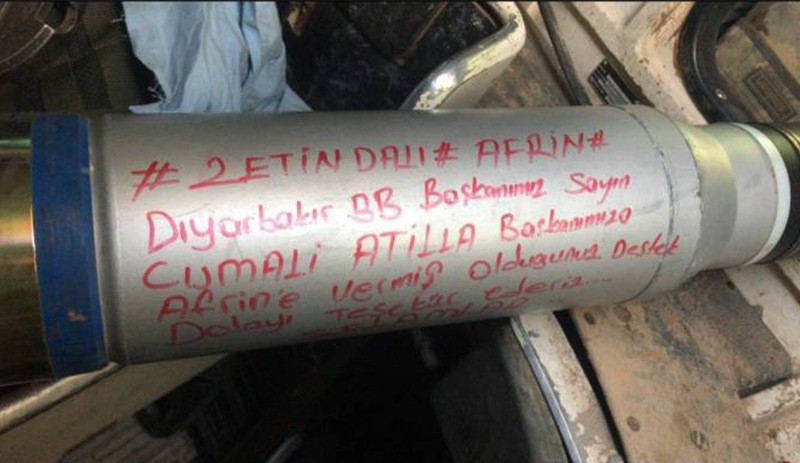 # ZETİN DALI # AFRİN #
Diyarbakır BB Başkanımız Sayın
CUMALİ ATİLLA Başkanımıza
Afrin'e vermiş olduğunuz Destek
Dolayı Teşekür ederiz....